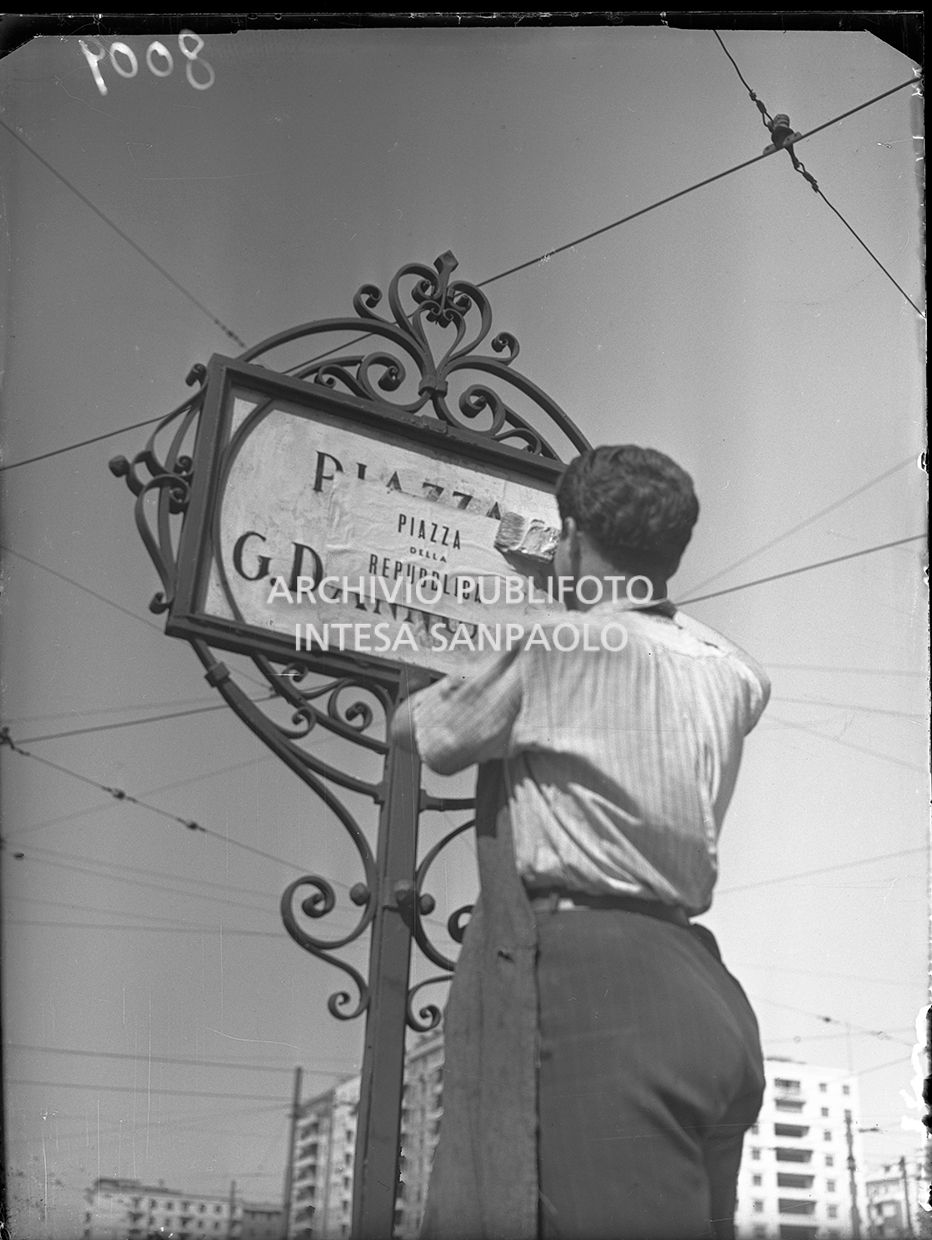 8004
PIAZZA
PIAZZA
DELLA
REPUBBLICA
G. D'ANNU
ARCHIVIO PUBLIFOTO
INTESA SANPAOLO